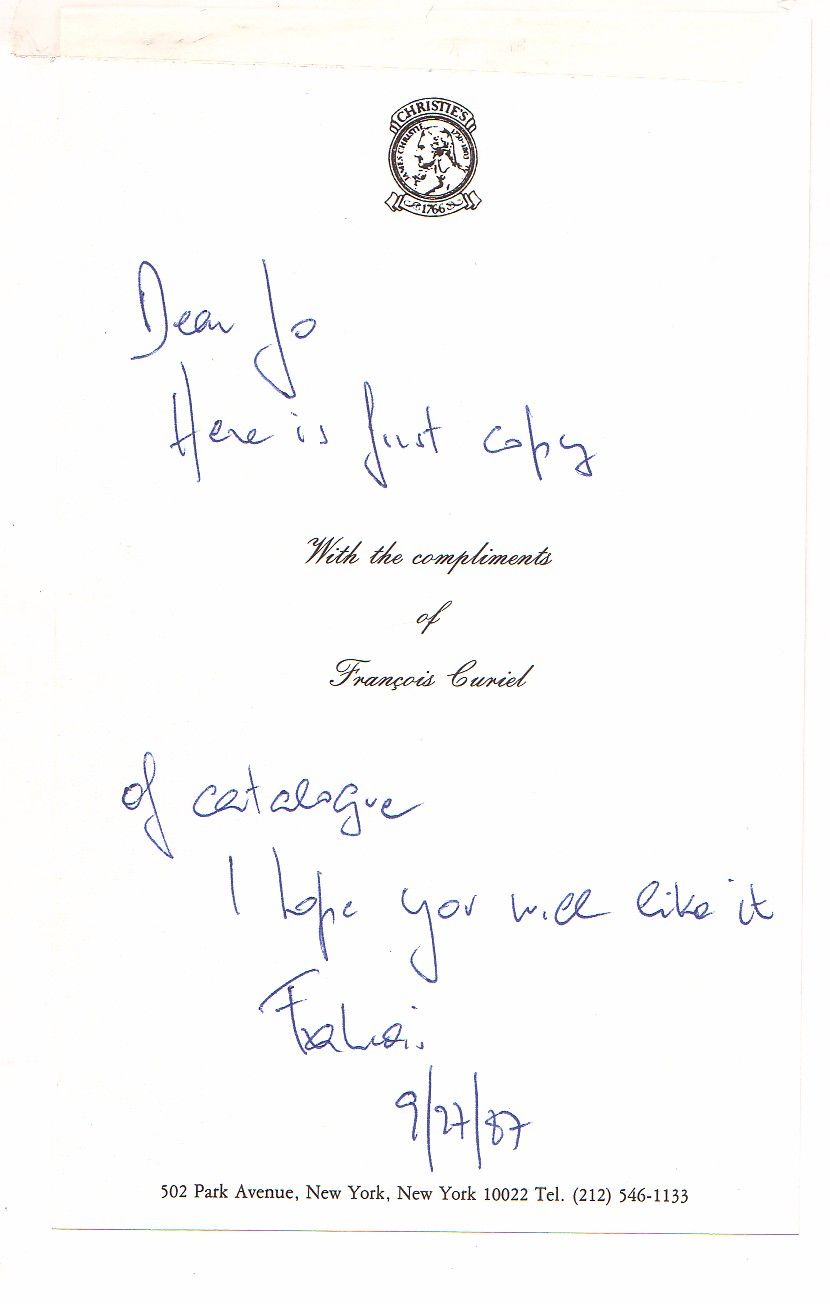 CHRISTIE'S
JAMES CHRISTIE 1730-1803
1766
Dear Jo
Here is first copy
With the compliments
of
François Curiel
of catalogue
I hope you will like it
François
9/27/87
502 Park Avenue, New York, New York 10022 Tel. (212) 546-1133